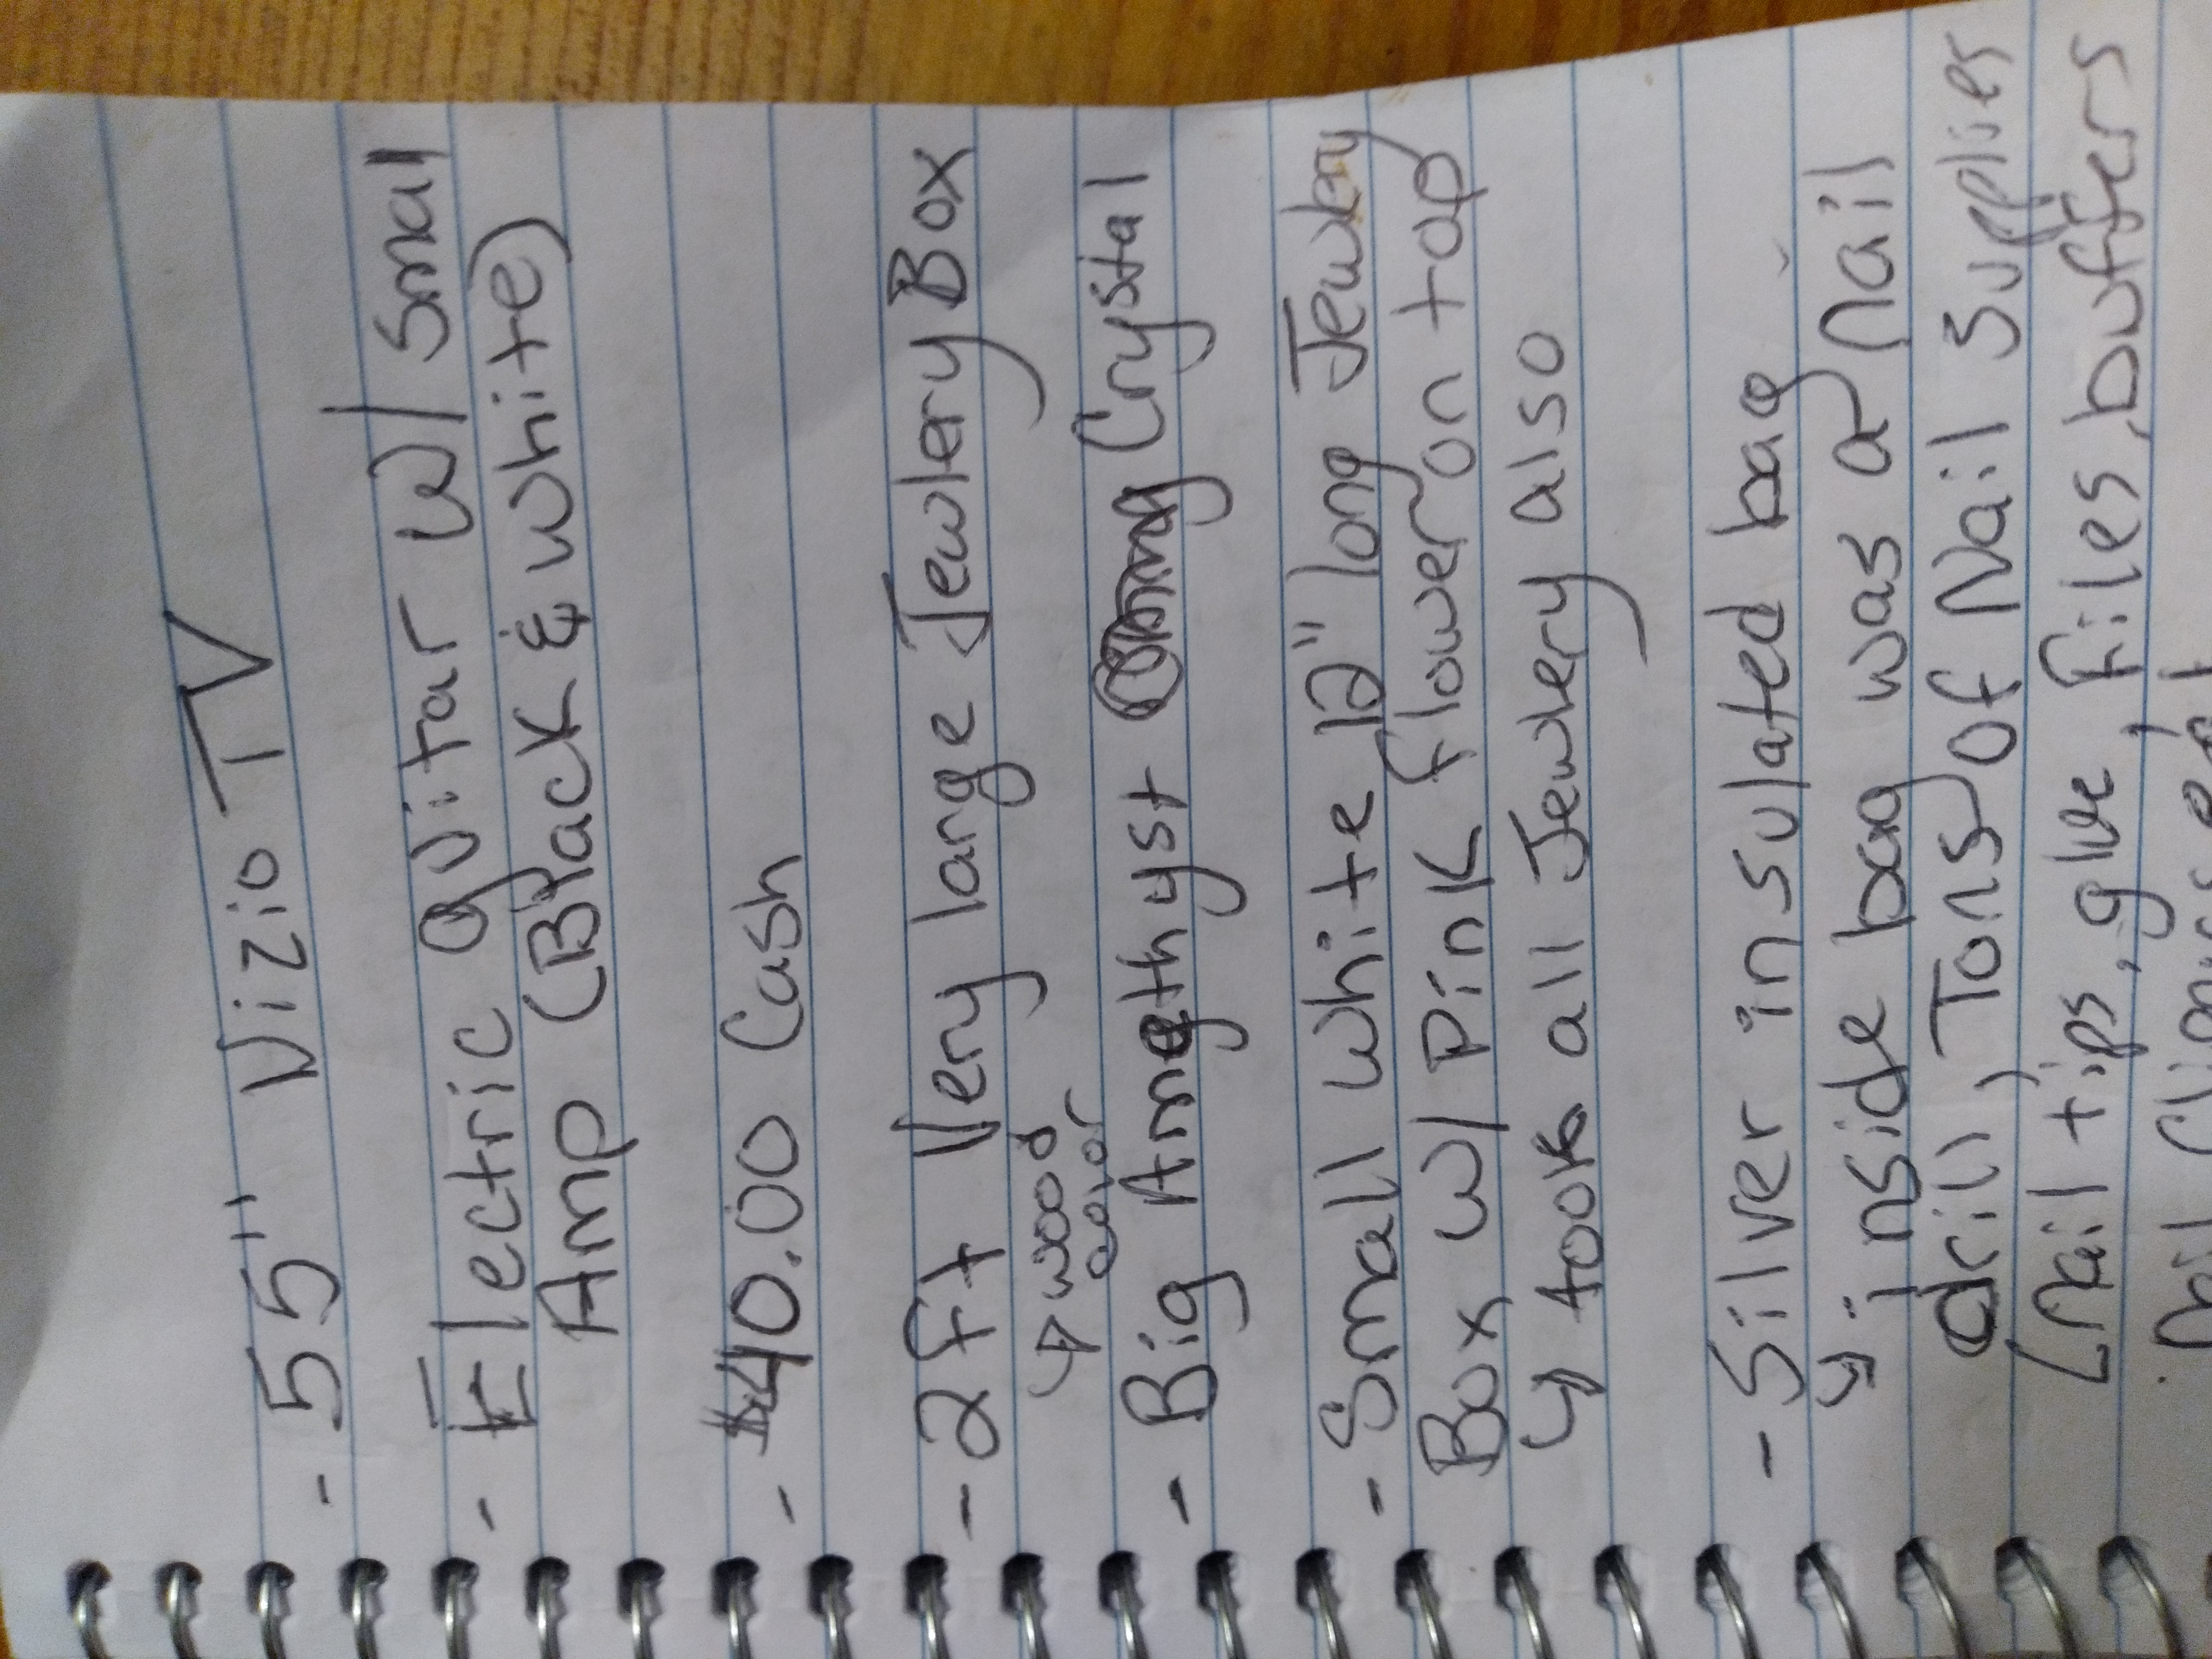 - 55" Vizio TV
- Electric guitar w/ Small
Amp (Black & white)
- $40.00 Cash
- 2ft Very large Jewlery Box
↳ wood color
- Big Amethyst Crystal
- Small white 12" long Jewlery
Box w/ Pink flower on top
↳ took all Jewlery also
- Silver insulated bag
↳ inside bag was a nail
drill, Tons of Nail Supplies
(nail tips, glue, files, buffers